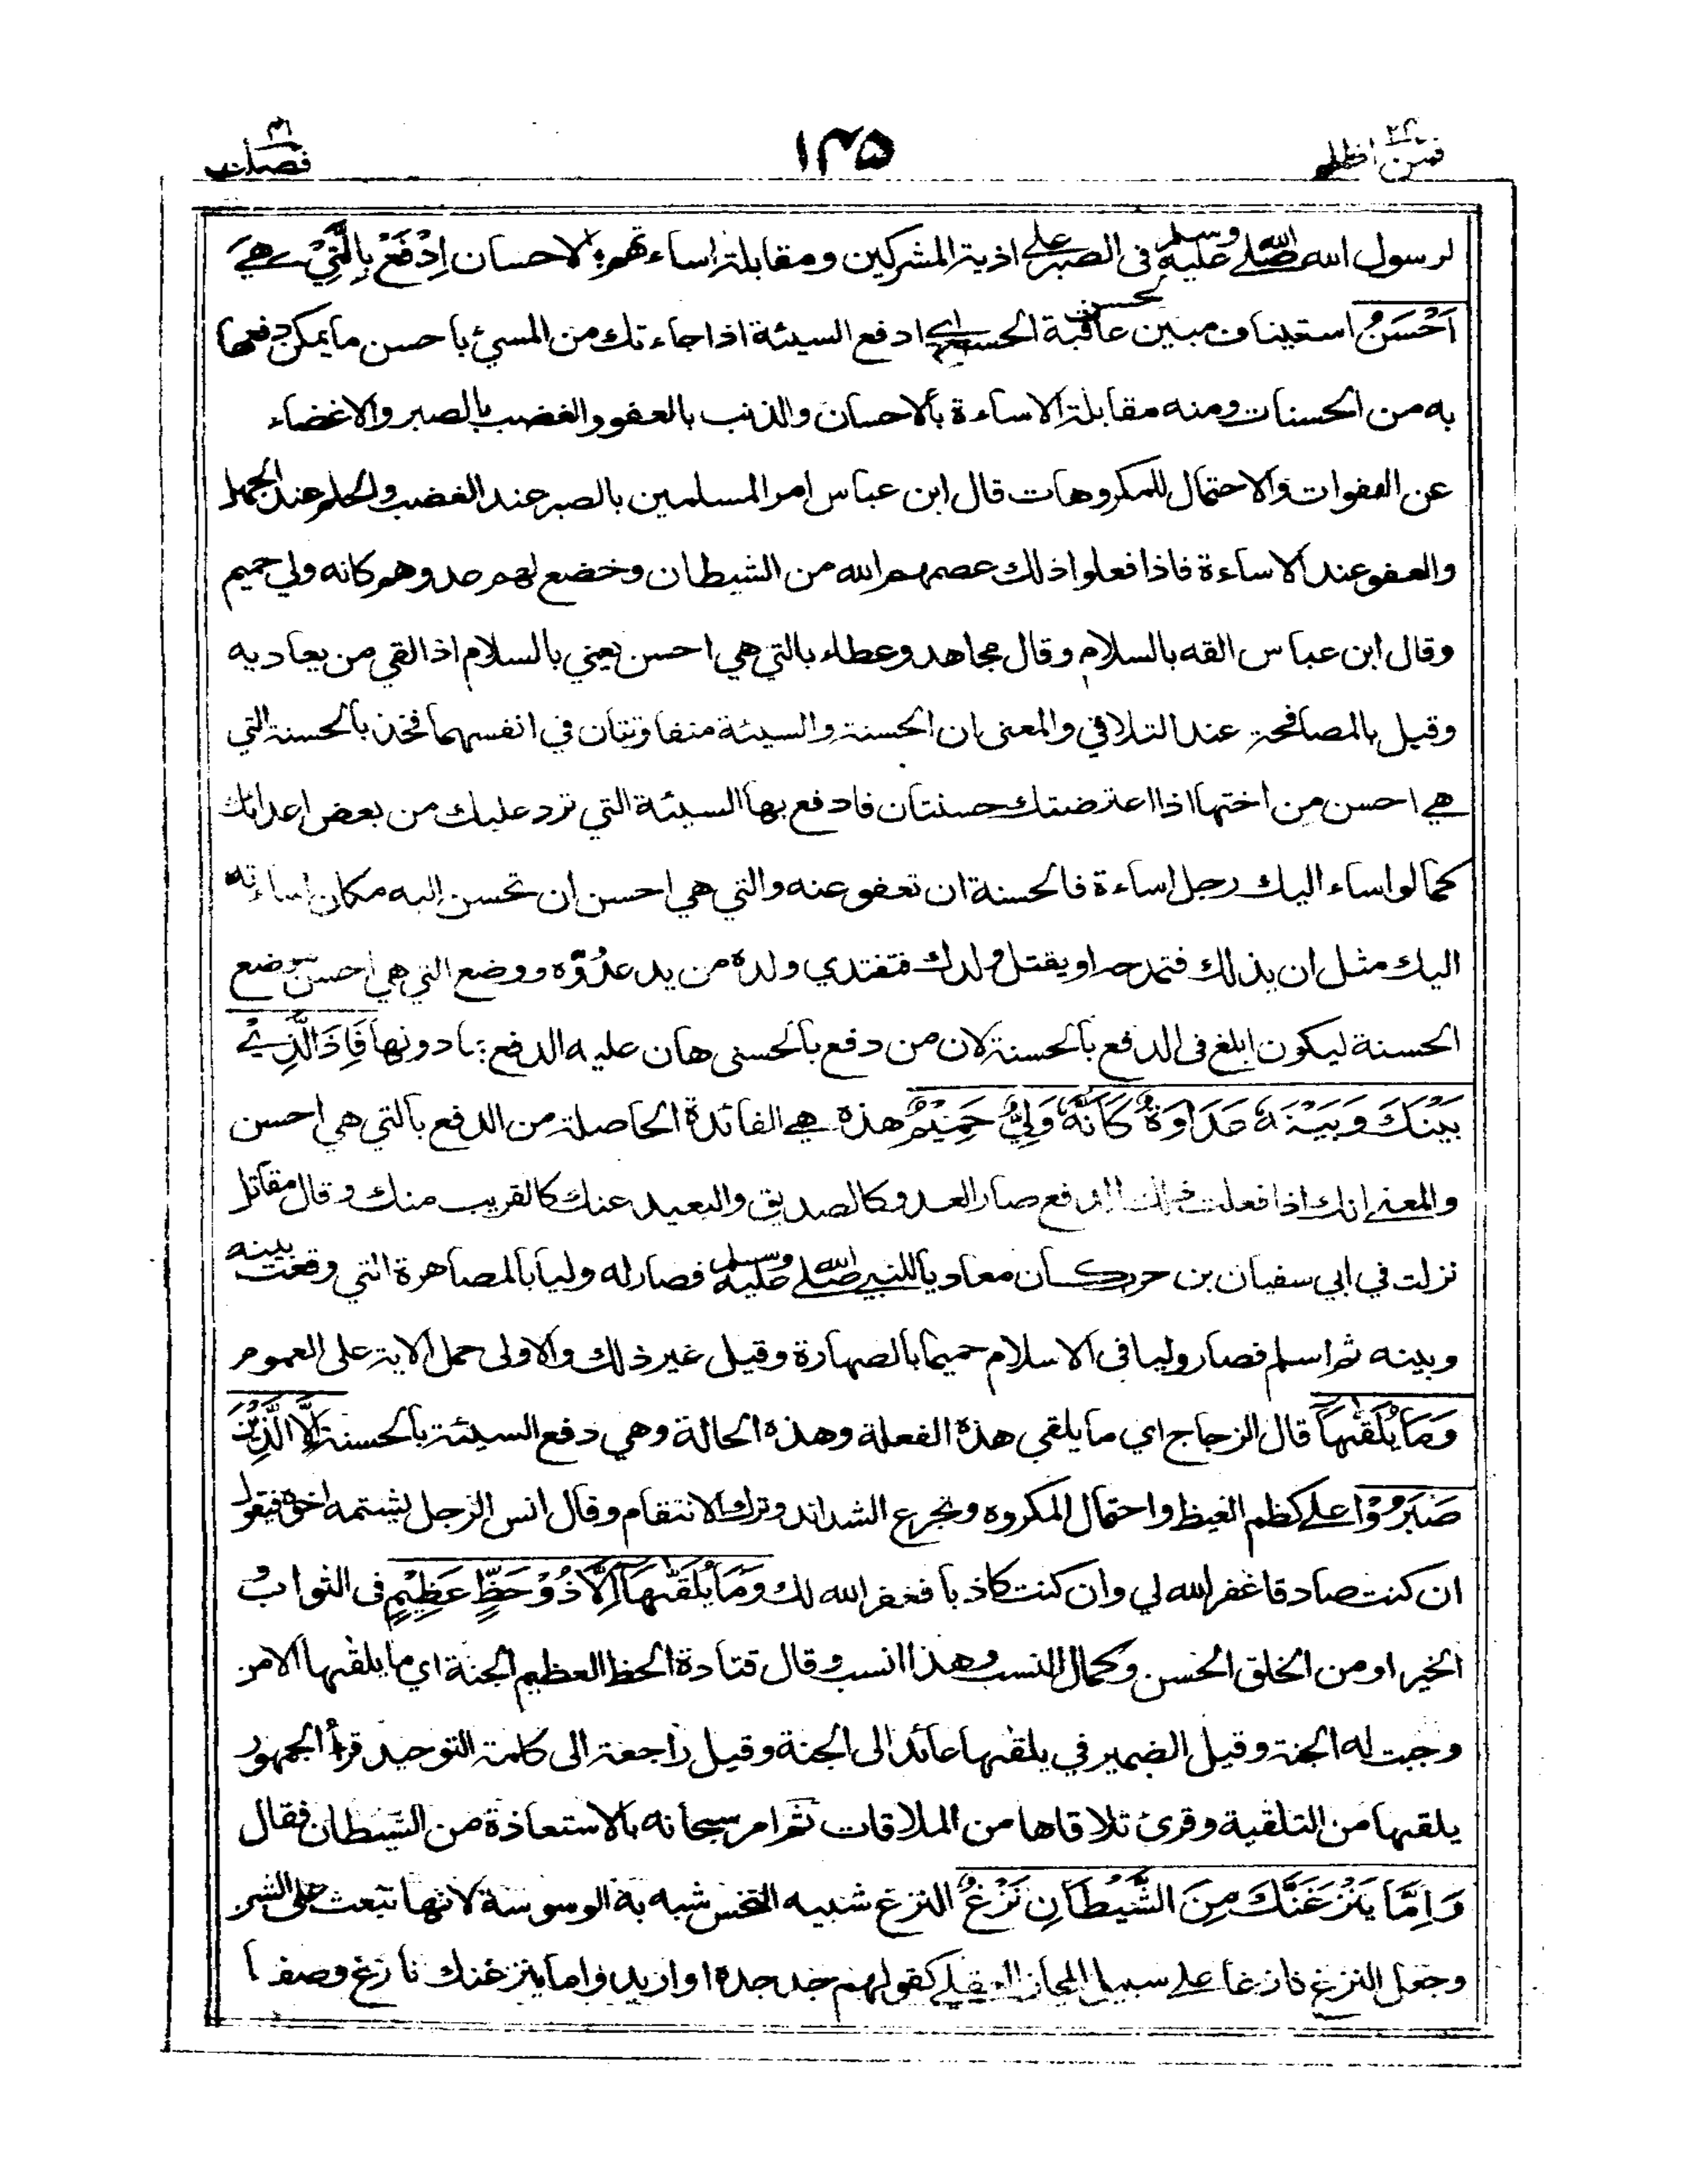 فمن اظلم ٢٤
١٤٥
فصلت ٤١
لرسول الله صلى الله عليه وسلم فى الصبر على اذية المشركين ومقابلة اساءتهم بالاحسان اِدْفَعْ بِالَّتِيْ هِيَ
اَحْسَنُ استيناف مبين لحسن عاقبة الحسنة اي ادفع السيئة اذا جاءتك من المسيئ باحسن ما يمكن دفعها
به من الحسنات ومنه مقابلة الاساءة بالاحسان والذنب بالعفو والغضب بالصبر والاغضاء
عن الهفوات والاحتمال للمكروهات قال ابن عباس امر المسلمين بالصبر عند الغضب والحلم عند الجهل
والعفو عند الاساءة فاذا فعلوا ذلك عصمهم الله من الشيطان وخضع لهم عدوهم كانه ولي حميم
وقال ابن عباس القه بالسلام وقال مجاهد وعطاء بالتي هي احسن يعني بالسلام اذا لقي من يعاديه
وقيل بالمصافحة عند التلاقي والمعنى ان الحسنة والسيئة متفاوتتان في انفسهما فخذ بالحسنة التي
هي احسن من اختها اذا اعترضتك حسنتان فادفع بها السيئة التي ترد عليك من بعض اعدائك
كما لو اساء اليك رجل اساءة فالحسنة ان تعفو عنه والتي هي احسن ان تحسن اليه مكان اساءته
اليك مثل ان يذلك فتمدحه او يقتل ولدك فتفتدي ولده من يد عدُوّه ووضع التي هي احسن موضع
الحسنة ليكون ابلغ فى الدفع بالحسنة لان من دفع بالحسنى هان عليه الدفع بما دونها فَاِذَا الَّذِيْ
بَيْنَكَ وَبَيْنَهٗ عَدَاوَةٌ كَاَنَّهٗ وَلِيٌّ حَمِيْمٌ هذه هي الفائدة الحاصلة من الدفع بالتي هي احسن
والمعنى انك اذا فعلت ذلك الدفع صار العدو كالصديق والبعيد عنك كالقريب منك وقال مقاتل
نزلت في ابي سفيان بن حرب كان معاديا للنبي صلى الله عليه وسلم فصار له وليا بالمصاهرة التي وقعت بينه
وبينه ثم اسلم فصار وليا فى الاسلام حميما بالصهارة وقيل غير ذلك والاولى حمل الاية على العموم
وَمَا يُلَقّٰىهَا قال الزجاج اي ما يلقى هذه الفعلة وهذه الحالة وهي دفع السيئة بالحسنة اِلَّا الَّذِيْنَ
صَبَرُوْا على كظم الغيظ واحتمال المكروه وتجرع الشدائد وترك الانتقام وقال انس الرجل يشتمه اخوه فيقول
ان كنت صادقا غفر الله لي وان كنت كاذبا فغفر الله لك وَمَا يُلَقّٰىهَا اِلَّا ذُوْ حَظٍّ عَظِيْمٍ فى الثواب و
الخير او من الخلق الحسن وكمال النسب وهذا انسب وقال قتادة الحظ العظيم الجنة اي ما يلقىها الا من
وجبت له الجنة وقيل الضمير في يلقىها عائد الى الجنة وقيل راجعة الى كلمة التوحيد قرأ الجمهور
يلقىها من التلقية وقرئ تلاقاها من الملاقات ثم امر سبحانه بالاستعاذة من الشيطان فقال
وَاِمَّا يَنْزَغَنَّكَ مِنَ الشَّيْطَانِ نَزْغٌ النزغ شبيه النخس شبه به الوسوسة لانها تبعث على الشر
وجعل النزغ نازغا على سبيل المجاز العقلي كقولهم جد جده او اريد واما ينزغنك نازغ وصفا